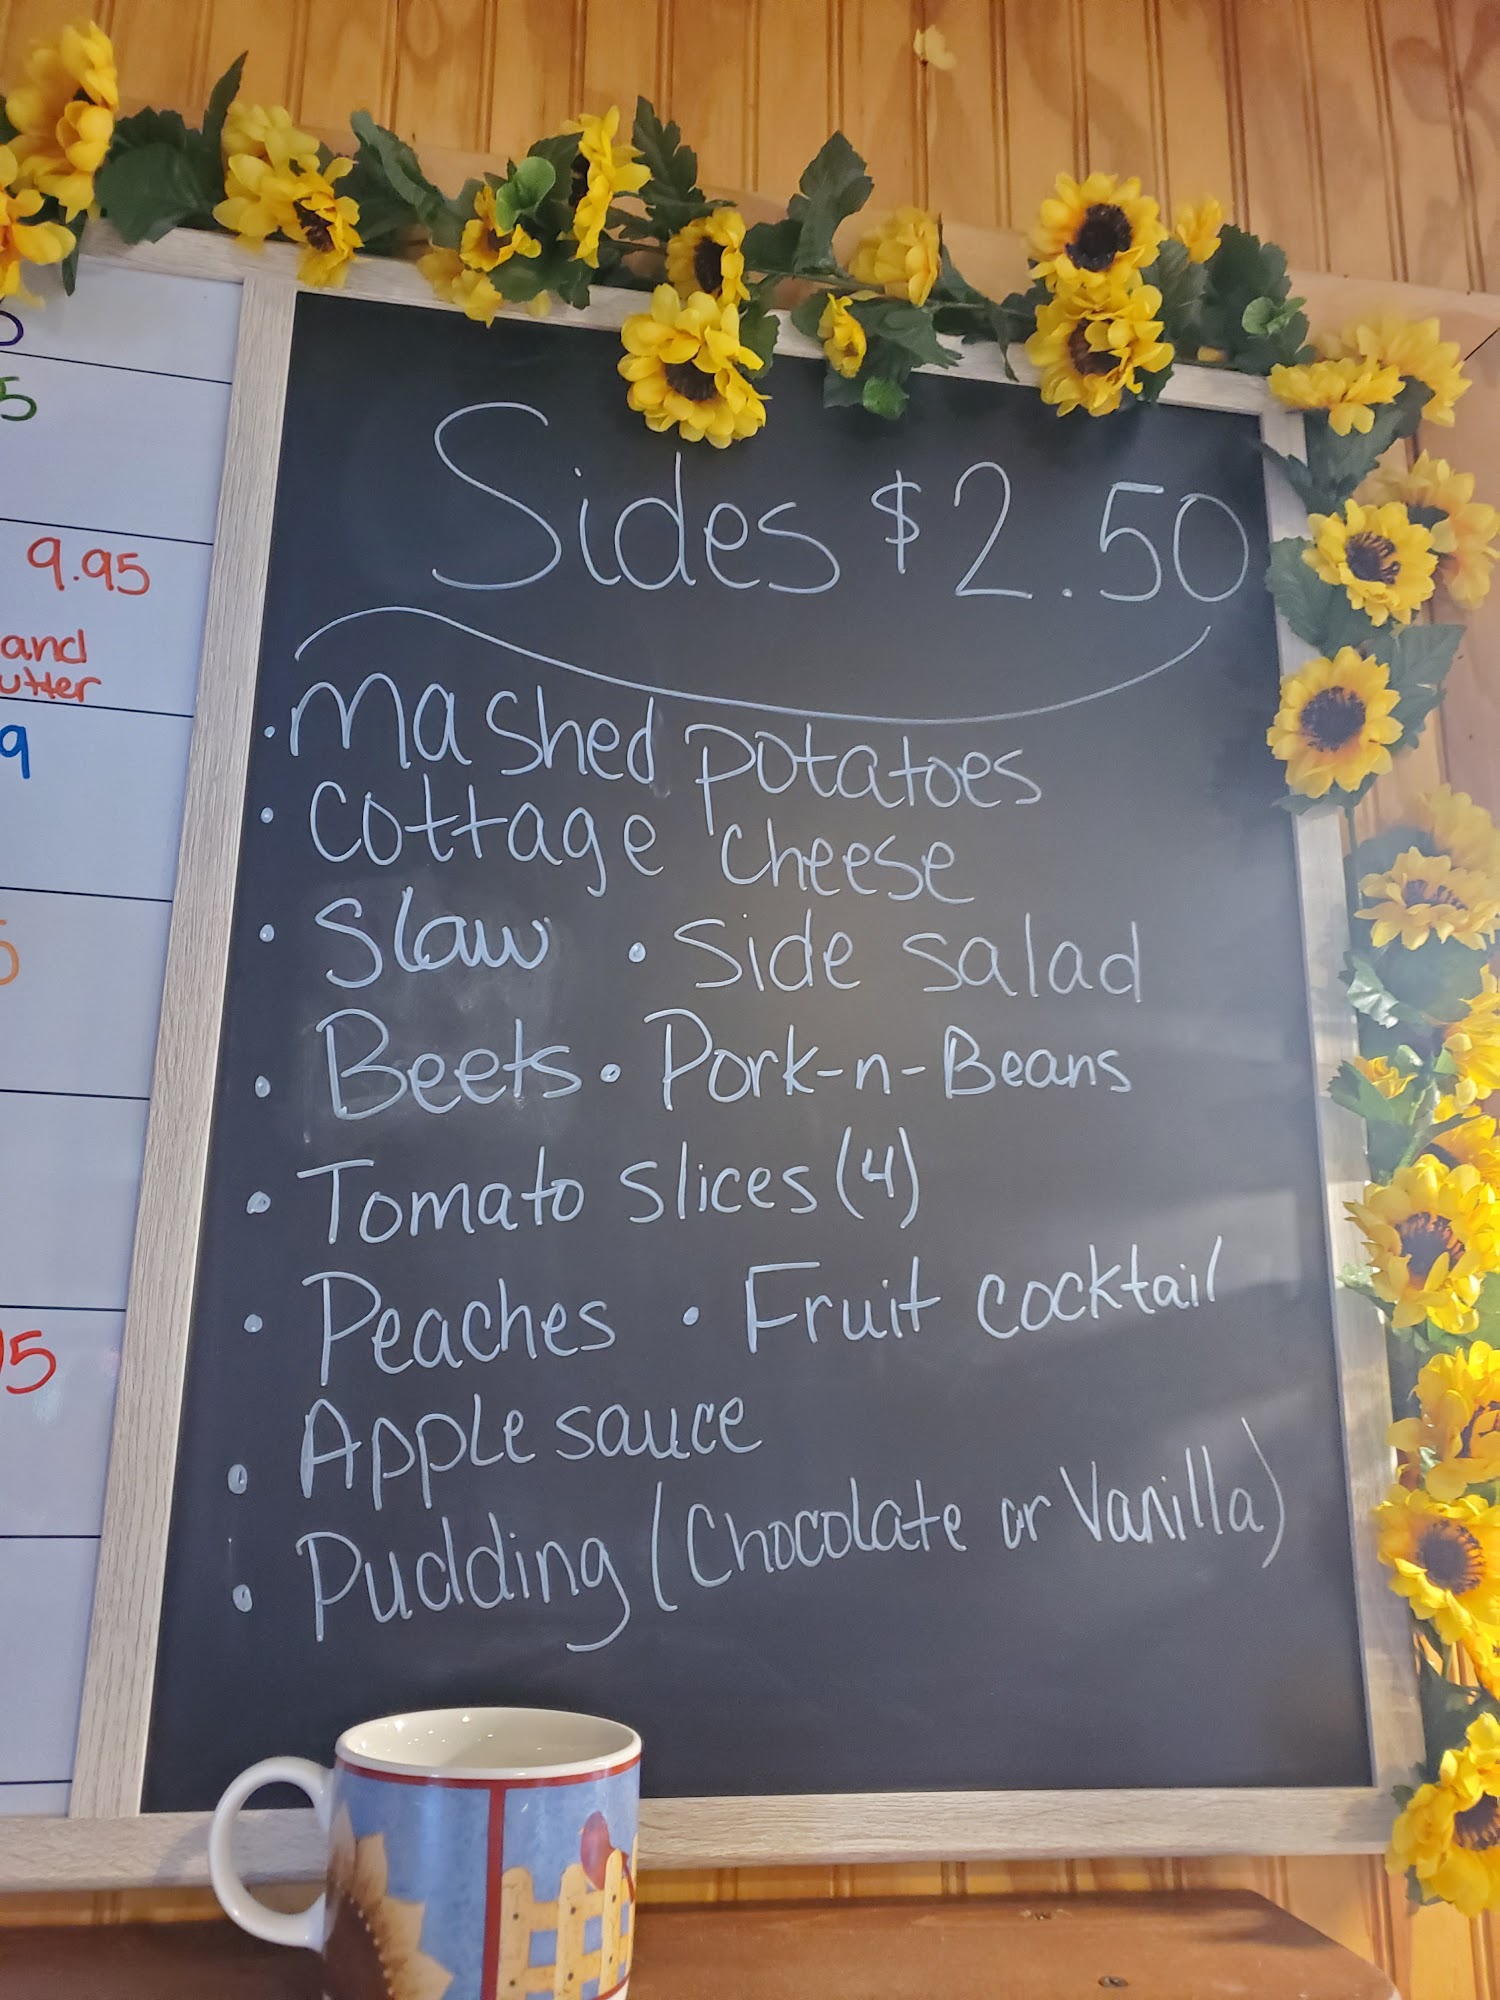 5
9.95
and
9
5
Sides $2.50
· Mashed potatoes
· Cottage cheese
· Slaw · Side salad
· Beets · Pork-n-Beans
· Tomato slices (4)
· Peaches · Fruit cocktail
· Apple sauce
· Pudding (Chocolate or Vanilla)